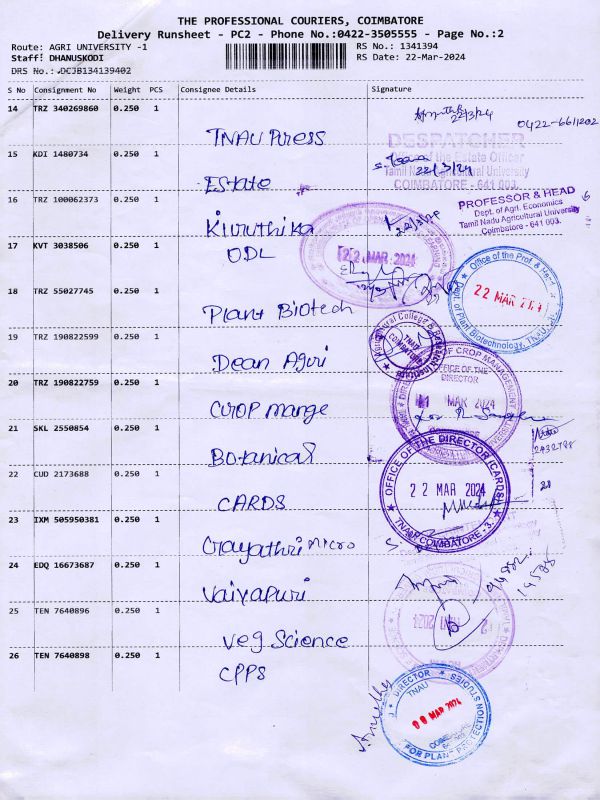 THE PROFESSIONAL COURIERS, COIMBATORE
Delivery Runsheet - PC2 - Phone No.:0422-3505555 - Page No.:2
Route: AGRI UNIVERSITY -1
RS No.: 1341394
Staff! DHANUSKODI
RS Date: 22-Mar-2024
DRS No.: DCJB134139402
S No Consignment No Weight PCS Consignee Details Signature
14 TRZ 340269860 0.250 1
22/3/24
0422-6611202
TNAU Press
DESPATCHER
15 KDI 1480734 0.250 1
Office of the Estate Officer
Tamil Nadu Agricultural University
22/3/24
COIMBATORE - 641 003.
Estate
16 TRZ 100062373 0.250 1
PROFESSOR & HEAD
Dept. of Agrl. Economics
Tamil Nadu Agricultural University
Coimbatore - 641 003.
Kiruthika
ODL
17 KVT 3038506 0.250 1
22 MAR 2024
Office of the Prof. & Head
Dept. of Plant Biotechnology, TNAU,
22 MAR 2024
18 TRZ 55027745 0.250 1
Plant Biotech
19 TRZ 190822599 0.250 1
Agricultural College & Research Institute
TNAU
COIMBATORE
Dean Agri
20 TRZ 190822759 0.250 1
OF CROP MANAGEMENT
OFFICE OF THE
DIRECTOR
MAR 2024
Crop mange
21 SKL 2550854 0.250 1
Botanical
22 CUD 2173688 0.250 1
OFFICE OF THE DIRECTOR (CARDS)
22 MAR 2024
TNAU COIMBATORE - 3.
CARDS
23 IXM 505950381 0.250 1
Gayathri Micro
24 EDQ 16673687 0.250 1
Vaiyapuri
25 TEN 7640896 0.250 1
Veg Science
26 TEN 7640898 0.250 1
CPPS
DIRECTOR
TNAU
MAR 2024
FOR PLANT PROTECTION STUDIES